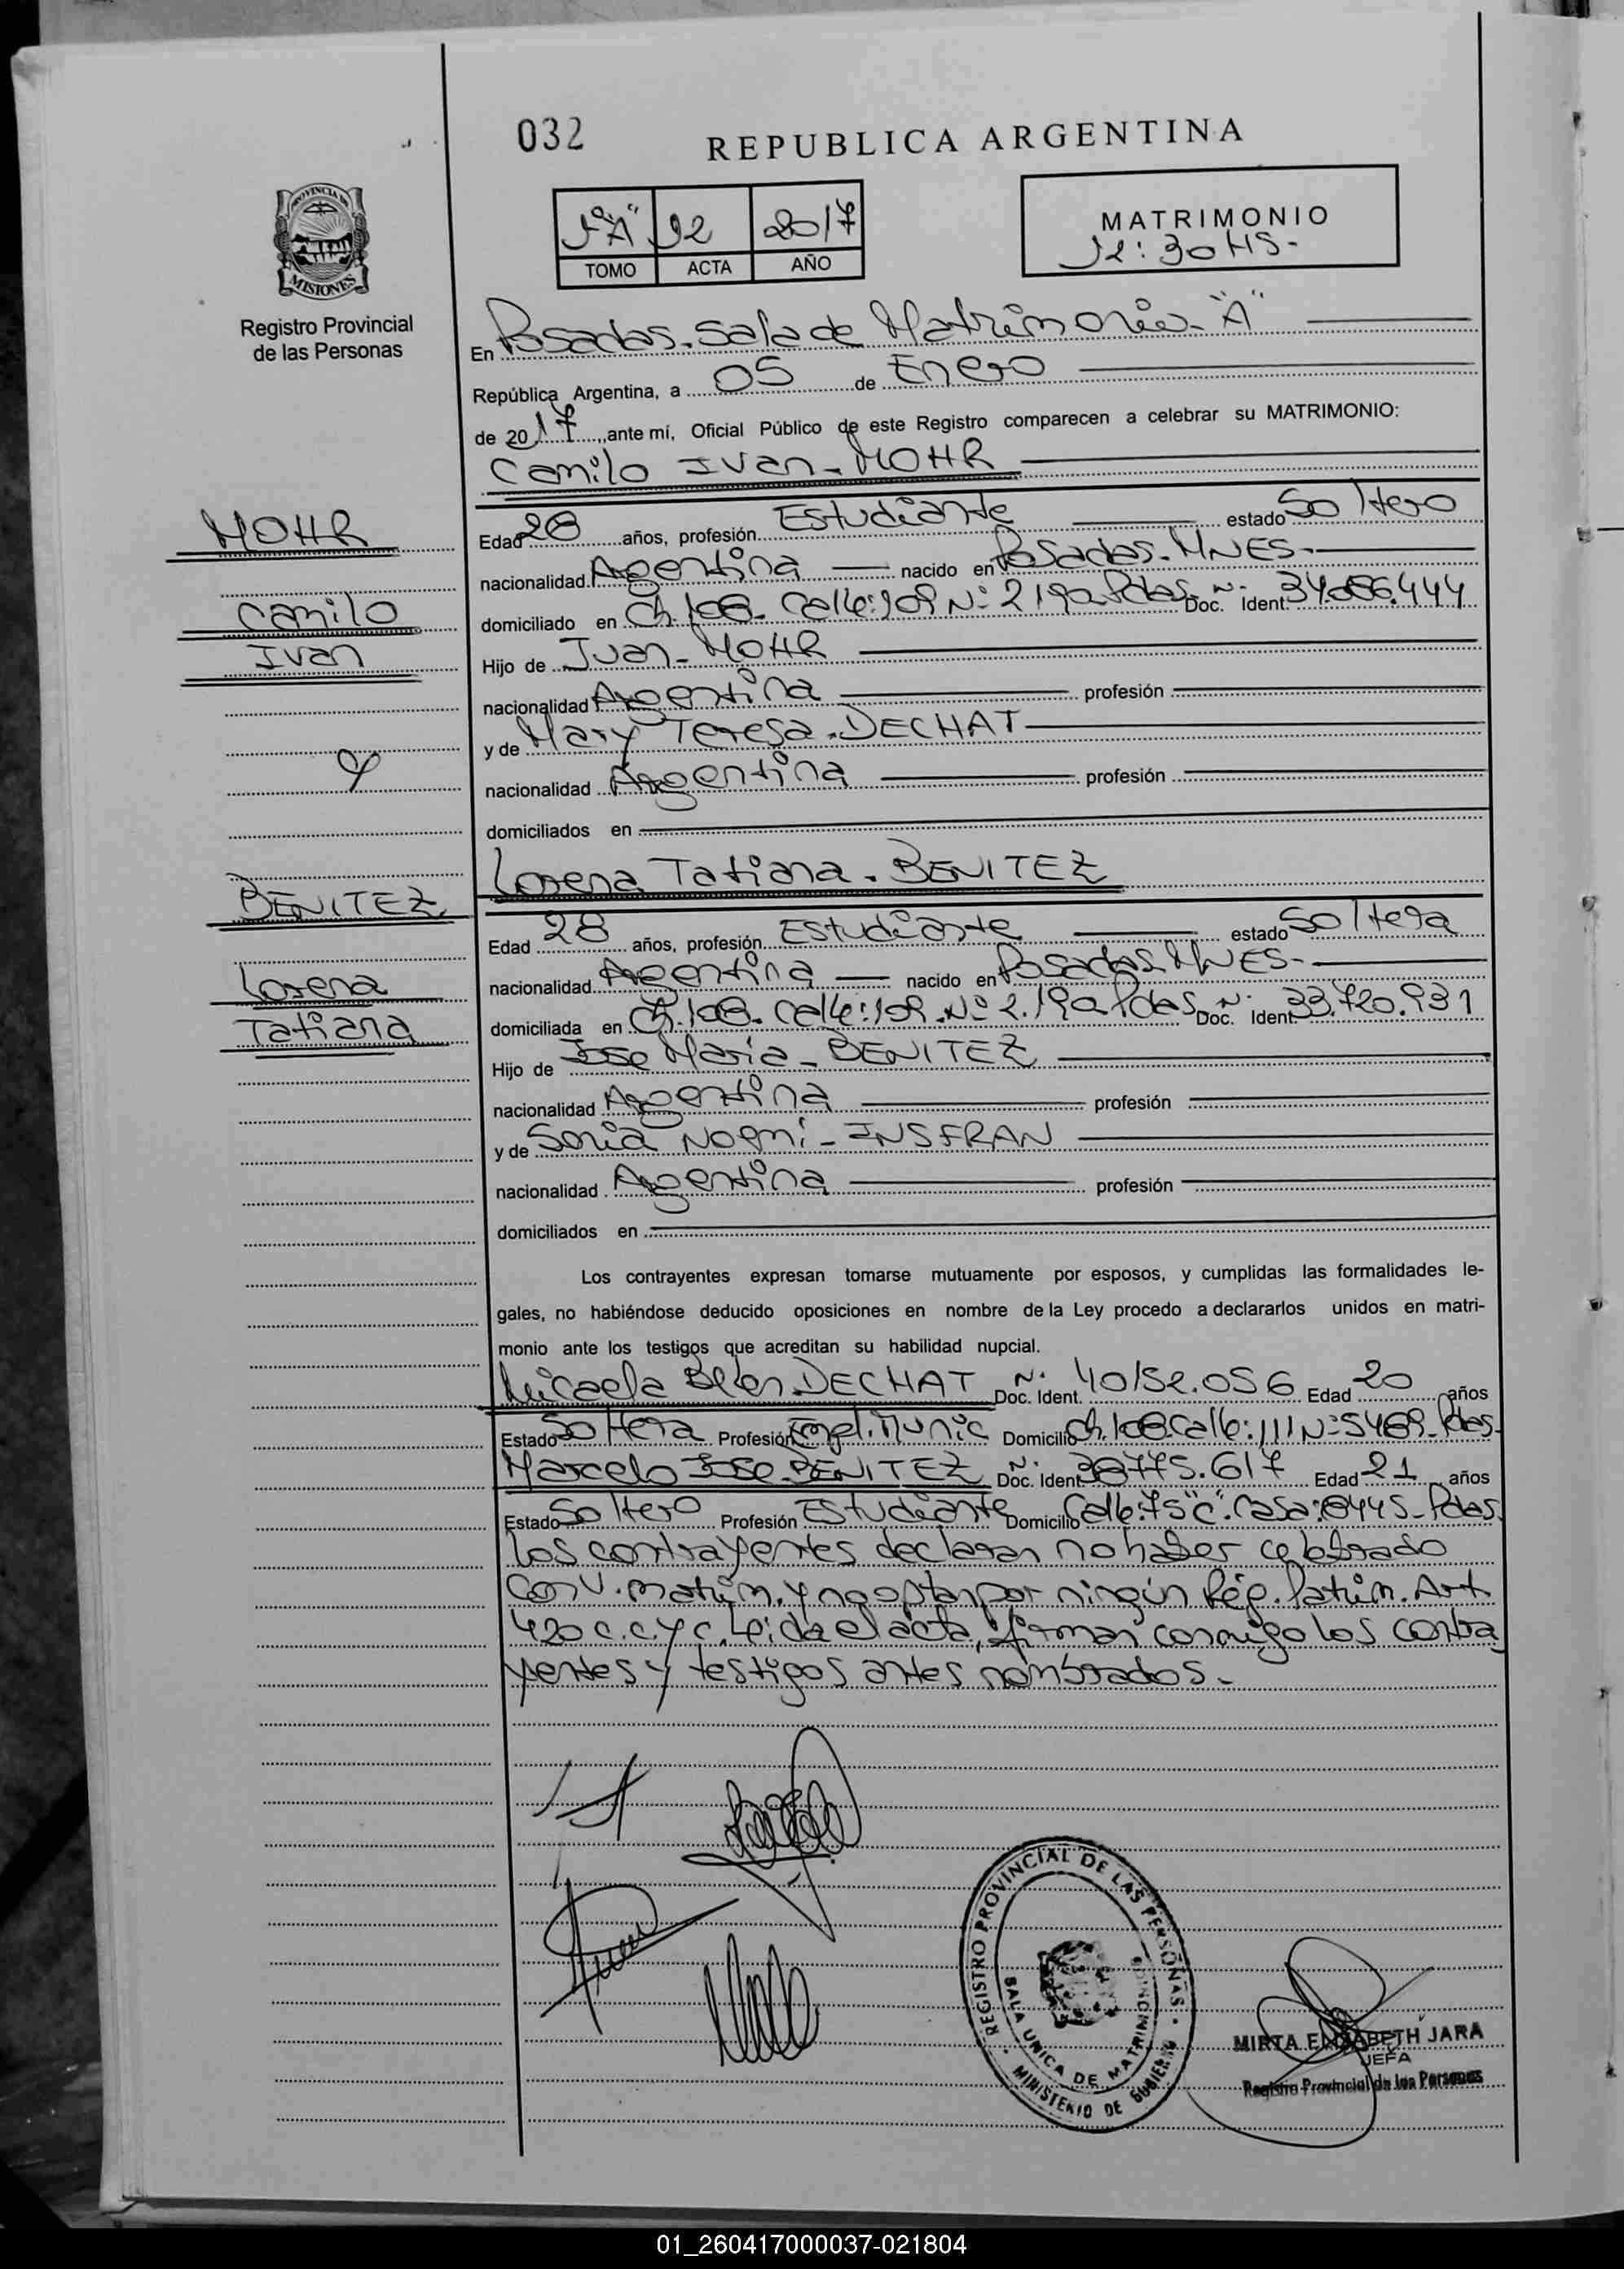 032
REPUBLICA ARGENTINA
PROVINCIA DE
MISIONES
Registro Provincial
de las Personas
1º "A" 12 2017
TOMO ACTA AÑO
MATRIMONIO
12:30 HS-
En Posadas. Sala de Matrimonio - "A"
República Argentina, a 05 de Enero
de 2017, ante mí, Oficial Público de este Registro comparecen a celebrar su MATRIMONIO:
Camilo Ivan - MOHR
MOHR
Camilo
Ivan
y
BENITEZ
Lorena
Tatiana
Edad 28 años, profesión Estudiante estado Soltero
nacionalidad Argentina nacido en Posadas - MNES -
domiciliado en Ch.108. Calle:109 Nº 2190 Pdas Doc. Nº Ident. 34.086.444
Hijo de Juan - MOHR
nacionalidad Argentina profesión
y de Mary Teresa. DECHAT
nacionalidad Argentina profesión
domiciliados en
Lorena Tatiana. BENITEZ
Edad 28 años, profesión Estudiante estado Soltera
nacionalidad Argentina nacido en Posadas MNES -
domiciliada en Ch.108. Calle:109. Nº 2.190 Pdas Doc. Nº Ident. 33.720.931
Hijo de Jose Maria - BENITEZ
nacionalidad Argentina profesión
y de Sonia Noemi - INSFRAN
nacionalidad Argentina profesión
domiciliados en
Los contrayentes expresan tomarse mutuamente por esposos, y cumplidas las formalidades le-
gales, no habiéndose deducido oposiciones en nombre de la Ley procedo a declararlos unidos en matri-
monio ante los testigos que acreditan su habilidad nupcial.
Micaela Belen DECHAT Doc. Nº Ident. 40152.056 Edad 20 años
Estado Soltera Profesión Empl. Munic Domicilio Ch.108 Calle: 111 Nº 5469 - Pdas-
Marcelo Jose. BENITEZ Doc. Nº Ident. 38775.617 Edad 21 años
Estado Soltero Profesión Estudiante Domicilio Calle:75"C". Casa: 8445 - Pdas.
Los contrayentes declaran no haber celebrado
Conv. matrim. y no optan por ningún Rég. Patrim. Art.
420 C.C.y C. Leida el acta, firman conmigo los contra
yentes y testigos antes nombrados.-
REGISTRO PROVINCIAL DE LAS PERSONAS
SALA UNICA DE MATRIMONIOS
MINISTERIO DE GOBIERNO
MIRTA ELISABETH JARA
JEFA
Registro Provincial de las Personas
01_260417000037-021804